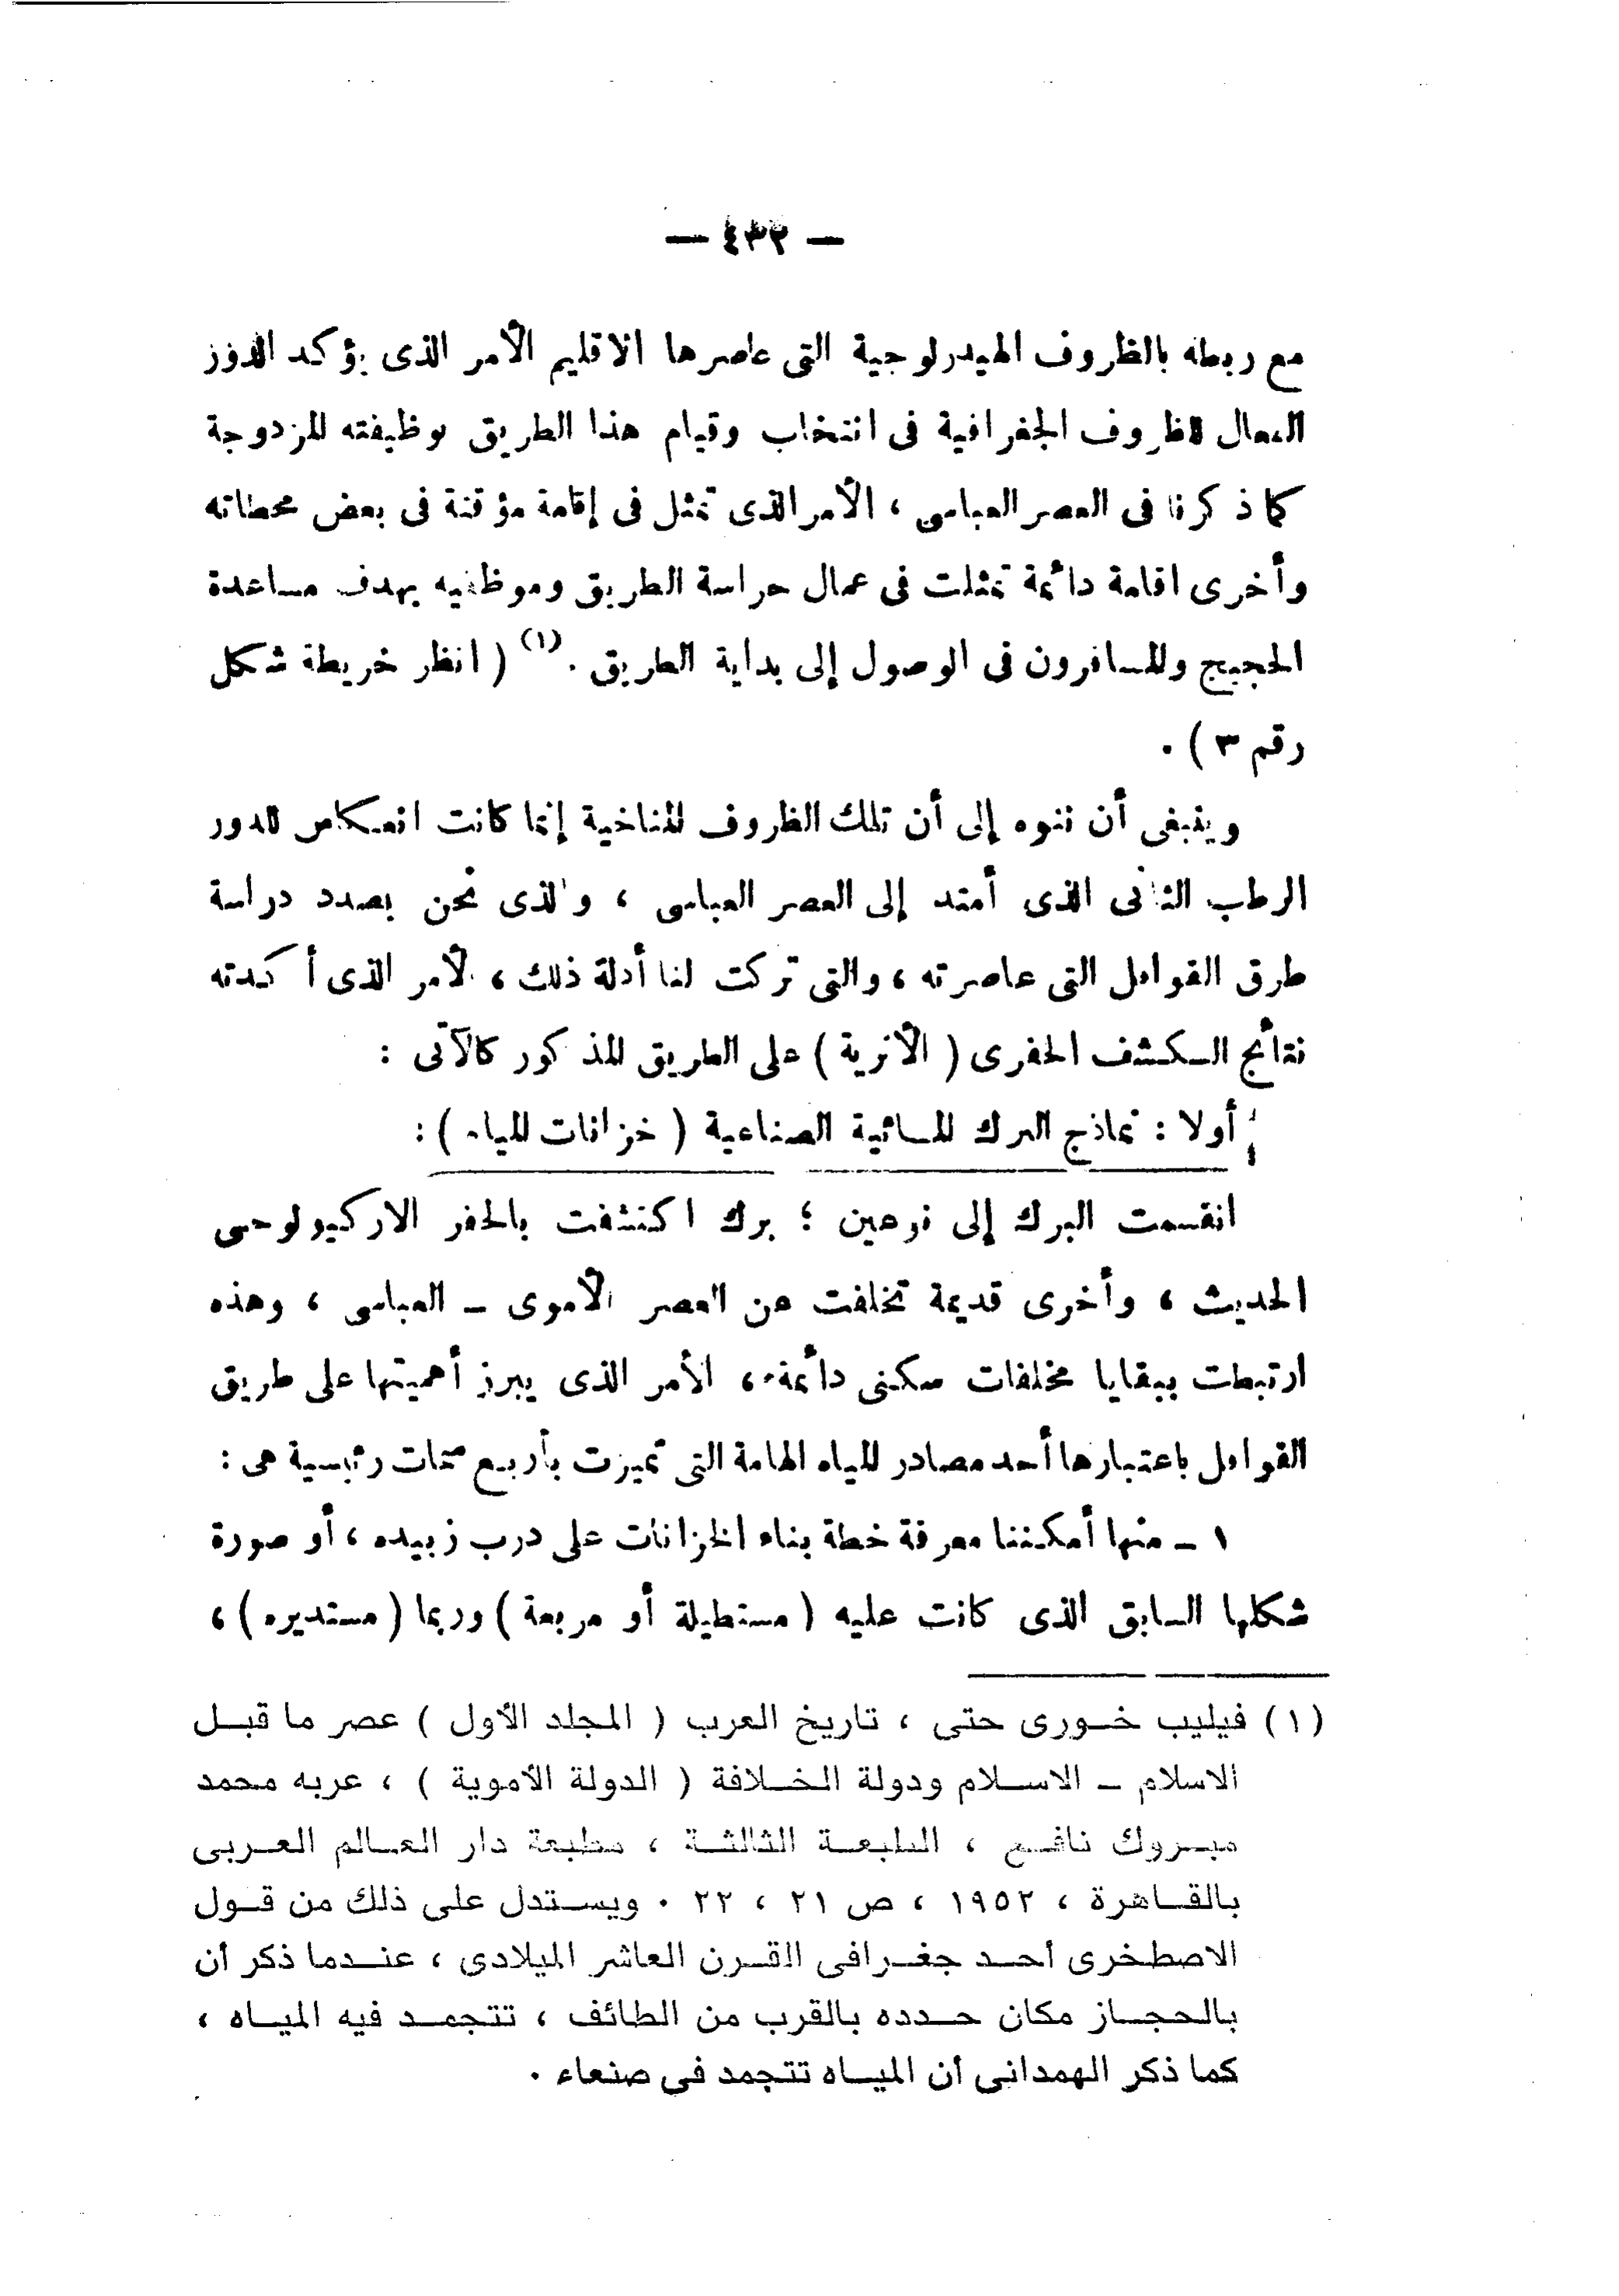 — ٤٣٢ —
مع ربطه بالظروف الهيدرلوجية التى عاصرها الاقليم الأمر الذى يؤكد الدور
الفعال للظروف الجغرافية فى انتخاب وقيام هذا الطريق بوظيفته المزدوجة
كما ذكرنا فى العصر العباسى ، الأمر الذى تمثل فى إقامة مؤقتة فى بعض محطاته
وأخرى اقامة دائمة تمثلت فى عمال حراسة الطريق وموظفيه بهدف مساعدة
الحجيج والمسافرون فى الوصول إلى بداية الطريق .(١) ( انظر خريطة شكل
رقم ٣ ) .
وينبغى أن ننوه إلى أن تلك الظروف المناخية إنما كانت انعكاس للدور
الرطب الثانى الذى أمتد إلى العصر العباسى ، والذى نحن بصدد دراسة
طرق القوافل التى عاصرته ، والتى تركت لنا أدلة ذلك ، الأمر الذى أكدته
نتائج الكشف الحفرى ( الأثرية ) على الطريق المذكور كالآتى :
أولا : نماذج البرك المائية الصناعية ( خزانات المياه ) :
انقسمت البرك إلى نوعين ؛ برك اكتشفت بالحفر الاركيولوجى
الحديث ، وأخرى قديمة تخلفت عن العصر الأموى – العباسى ، وهذه
ارتبطت ببقايا مخلفات سكنى دائمة ، الأمر الذى يبرز أهميتها على طريق
القوافل باعتبارها أحد مصادر المياه الهامة التى تميزت بأربع سمات رئيسية هى :
١ – منها أمكننا معرفة خطة بناء الخزانات على درب زبيده ، أو صورة
شكلها السابق الذى كانت عليه ( مستطيلة أو مربعة ) وربما ( مستديره ) ،
(١) فيليب خورى حتى ، تاريخ العرب ( المجلد الأول ) عصر ما قبل
الاسلام – الاسلام ودولة الخلافة ( الدولة الأموية ) ، عربه محمد
مبروك نافع ، الطبعة الثالثة ، مطبعة دار العالم العربى
بالقاهرة ، ١٩٥٢ ، ص ٢١ ، ٢٢ . ويستدل على ذلك من قول
الاصطخرى أحد جغرافى القرن العاشر الميلادى ، عندما ذكر أن
بالحجاز مكان حدده بالقرب من الطائف ، تتجمد فيه المياه ،
كما ذكر الهمدانى أن المياه تتجمد فى صنعاء .